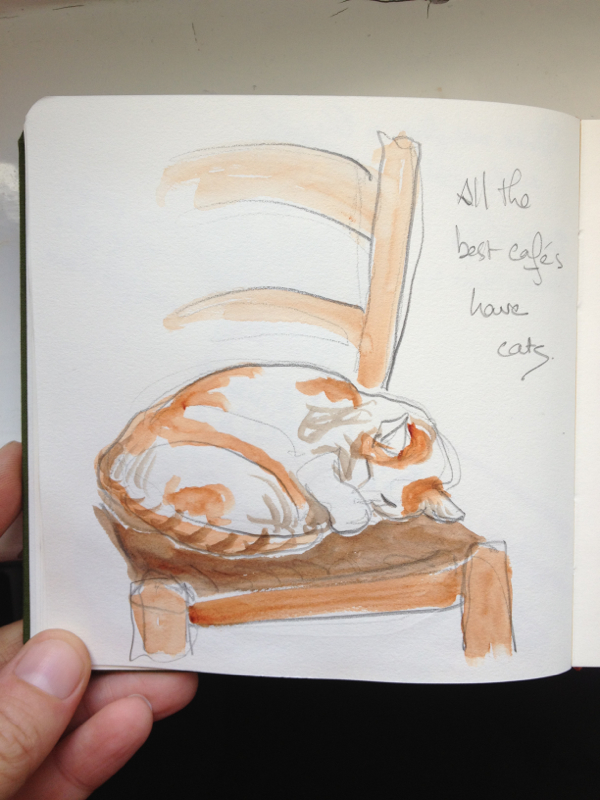 All the
best cafés
have
cats.